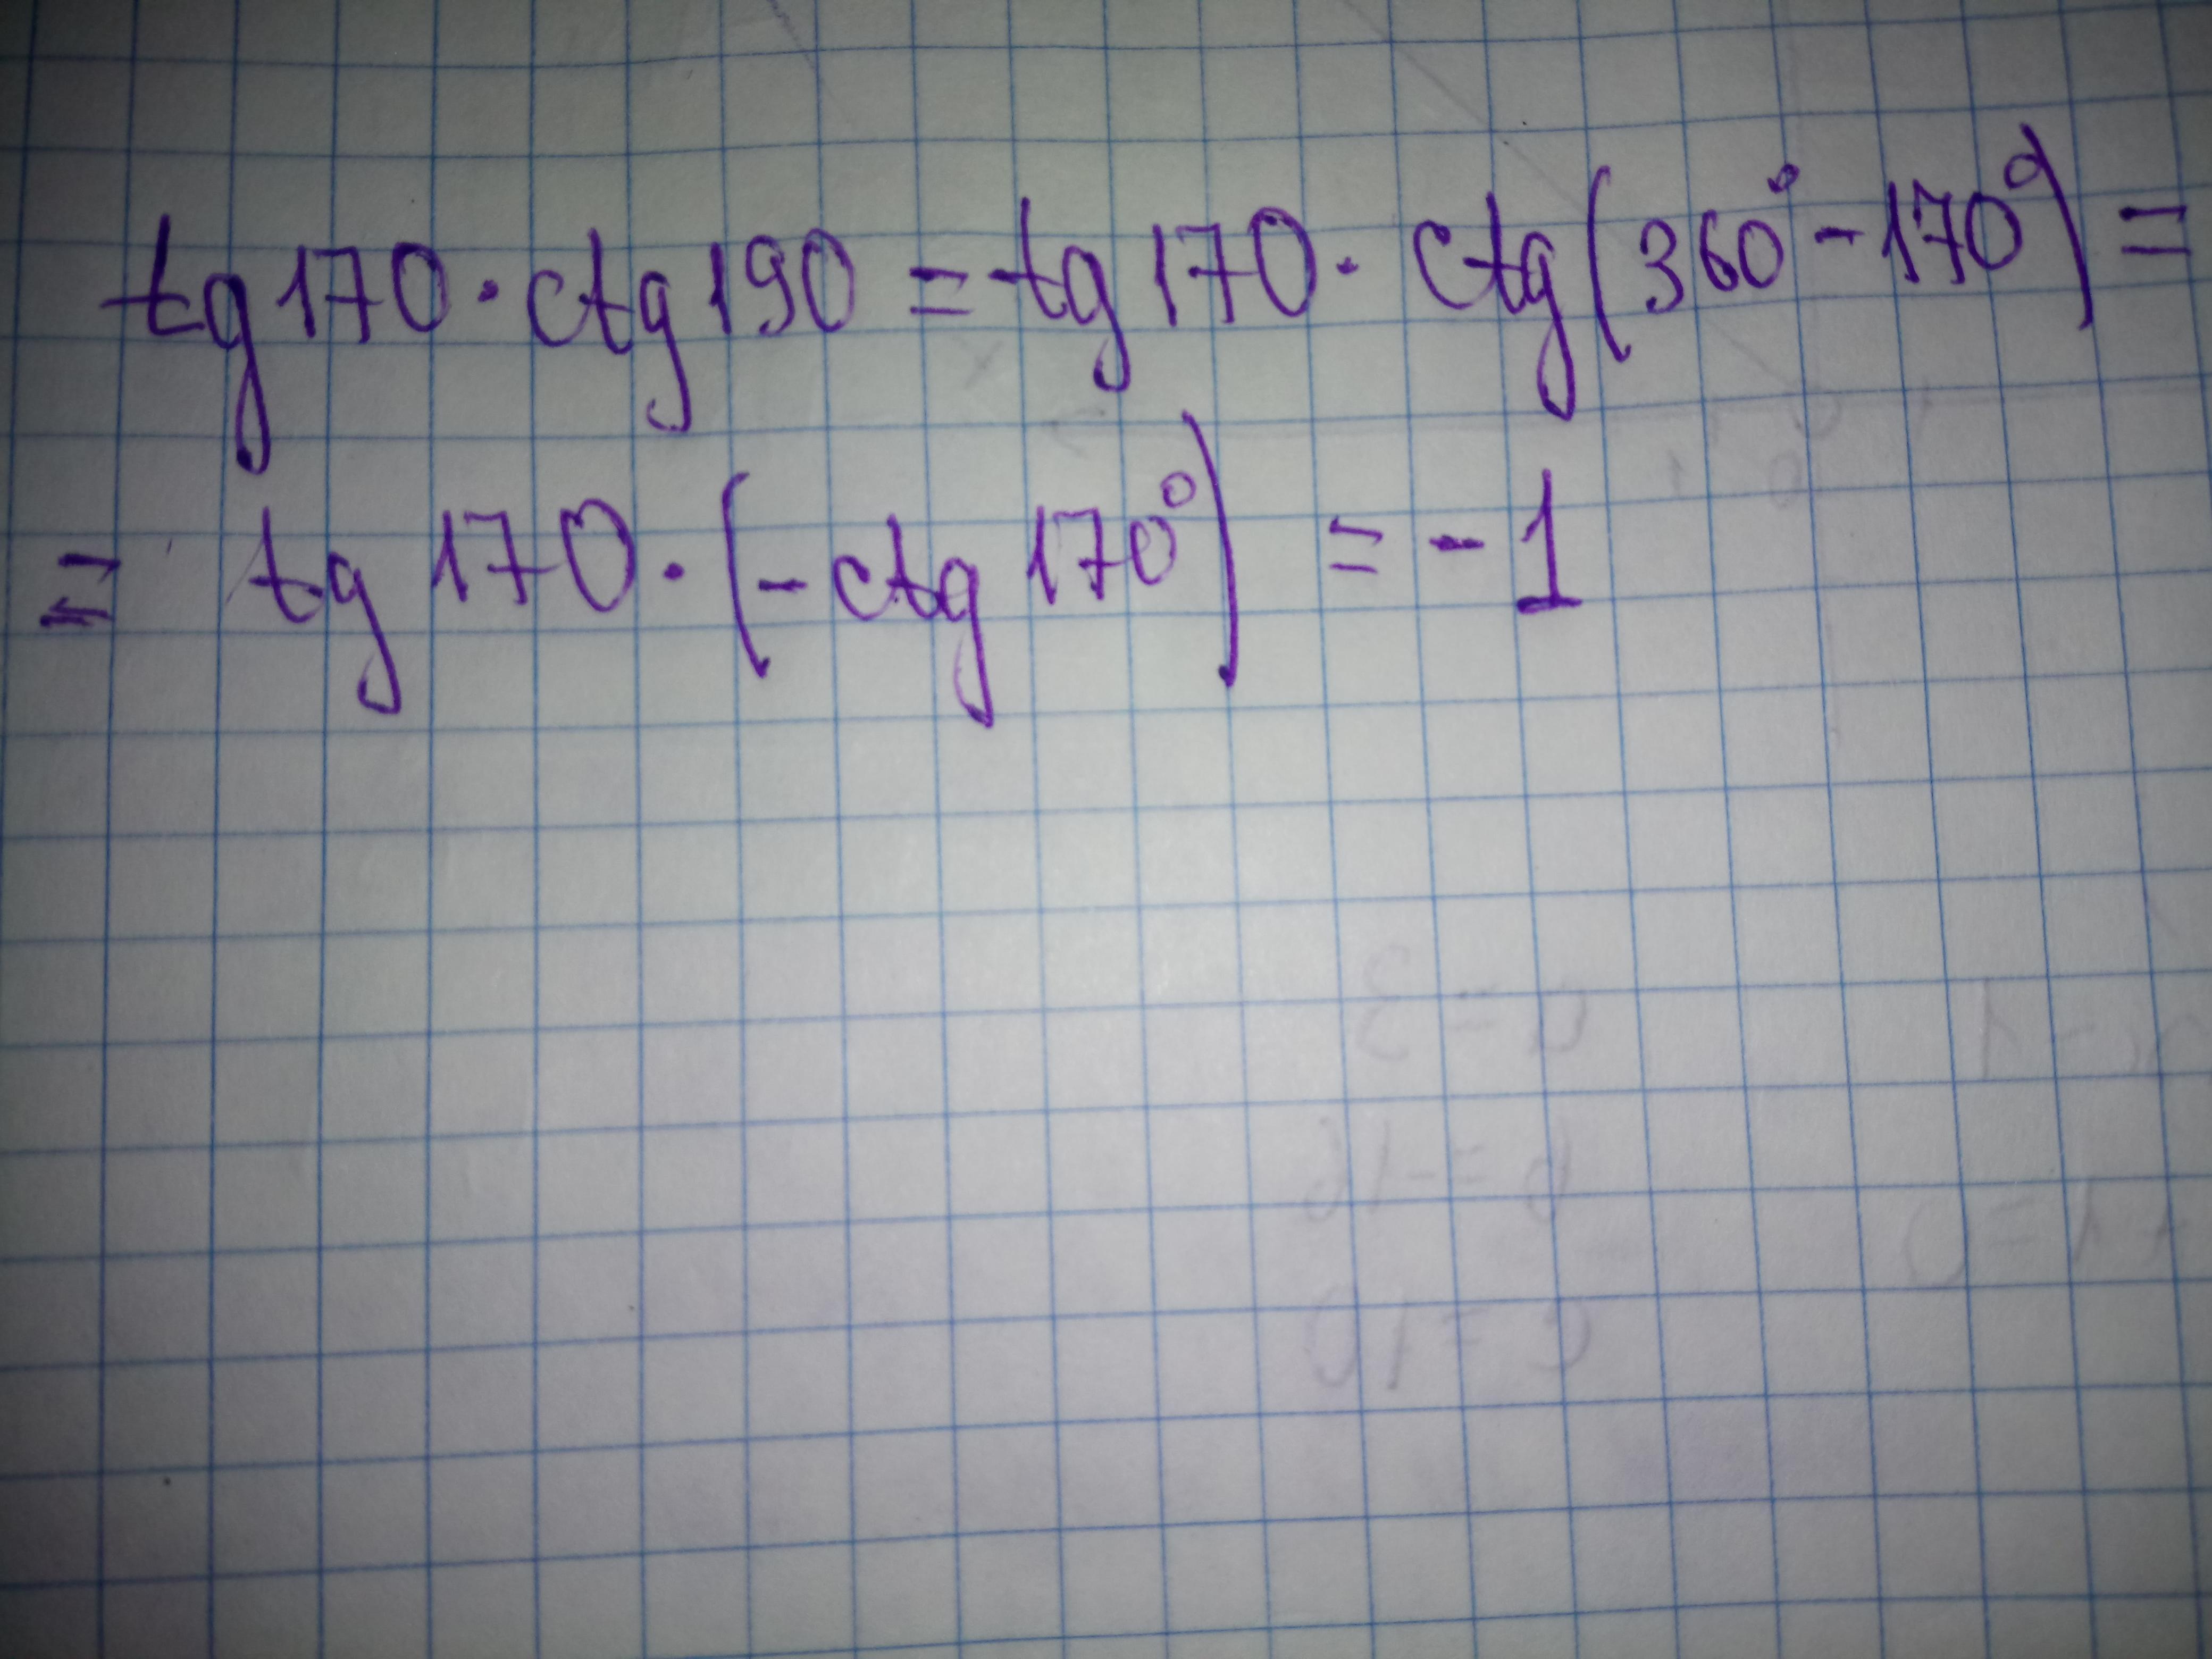 tg 170 · ctg 190 = tg 170 · ctg (360° - 170°) =
= tg 170 · (- ctg 170°) = - 1